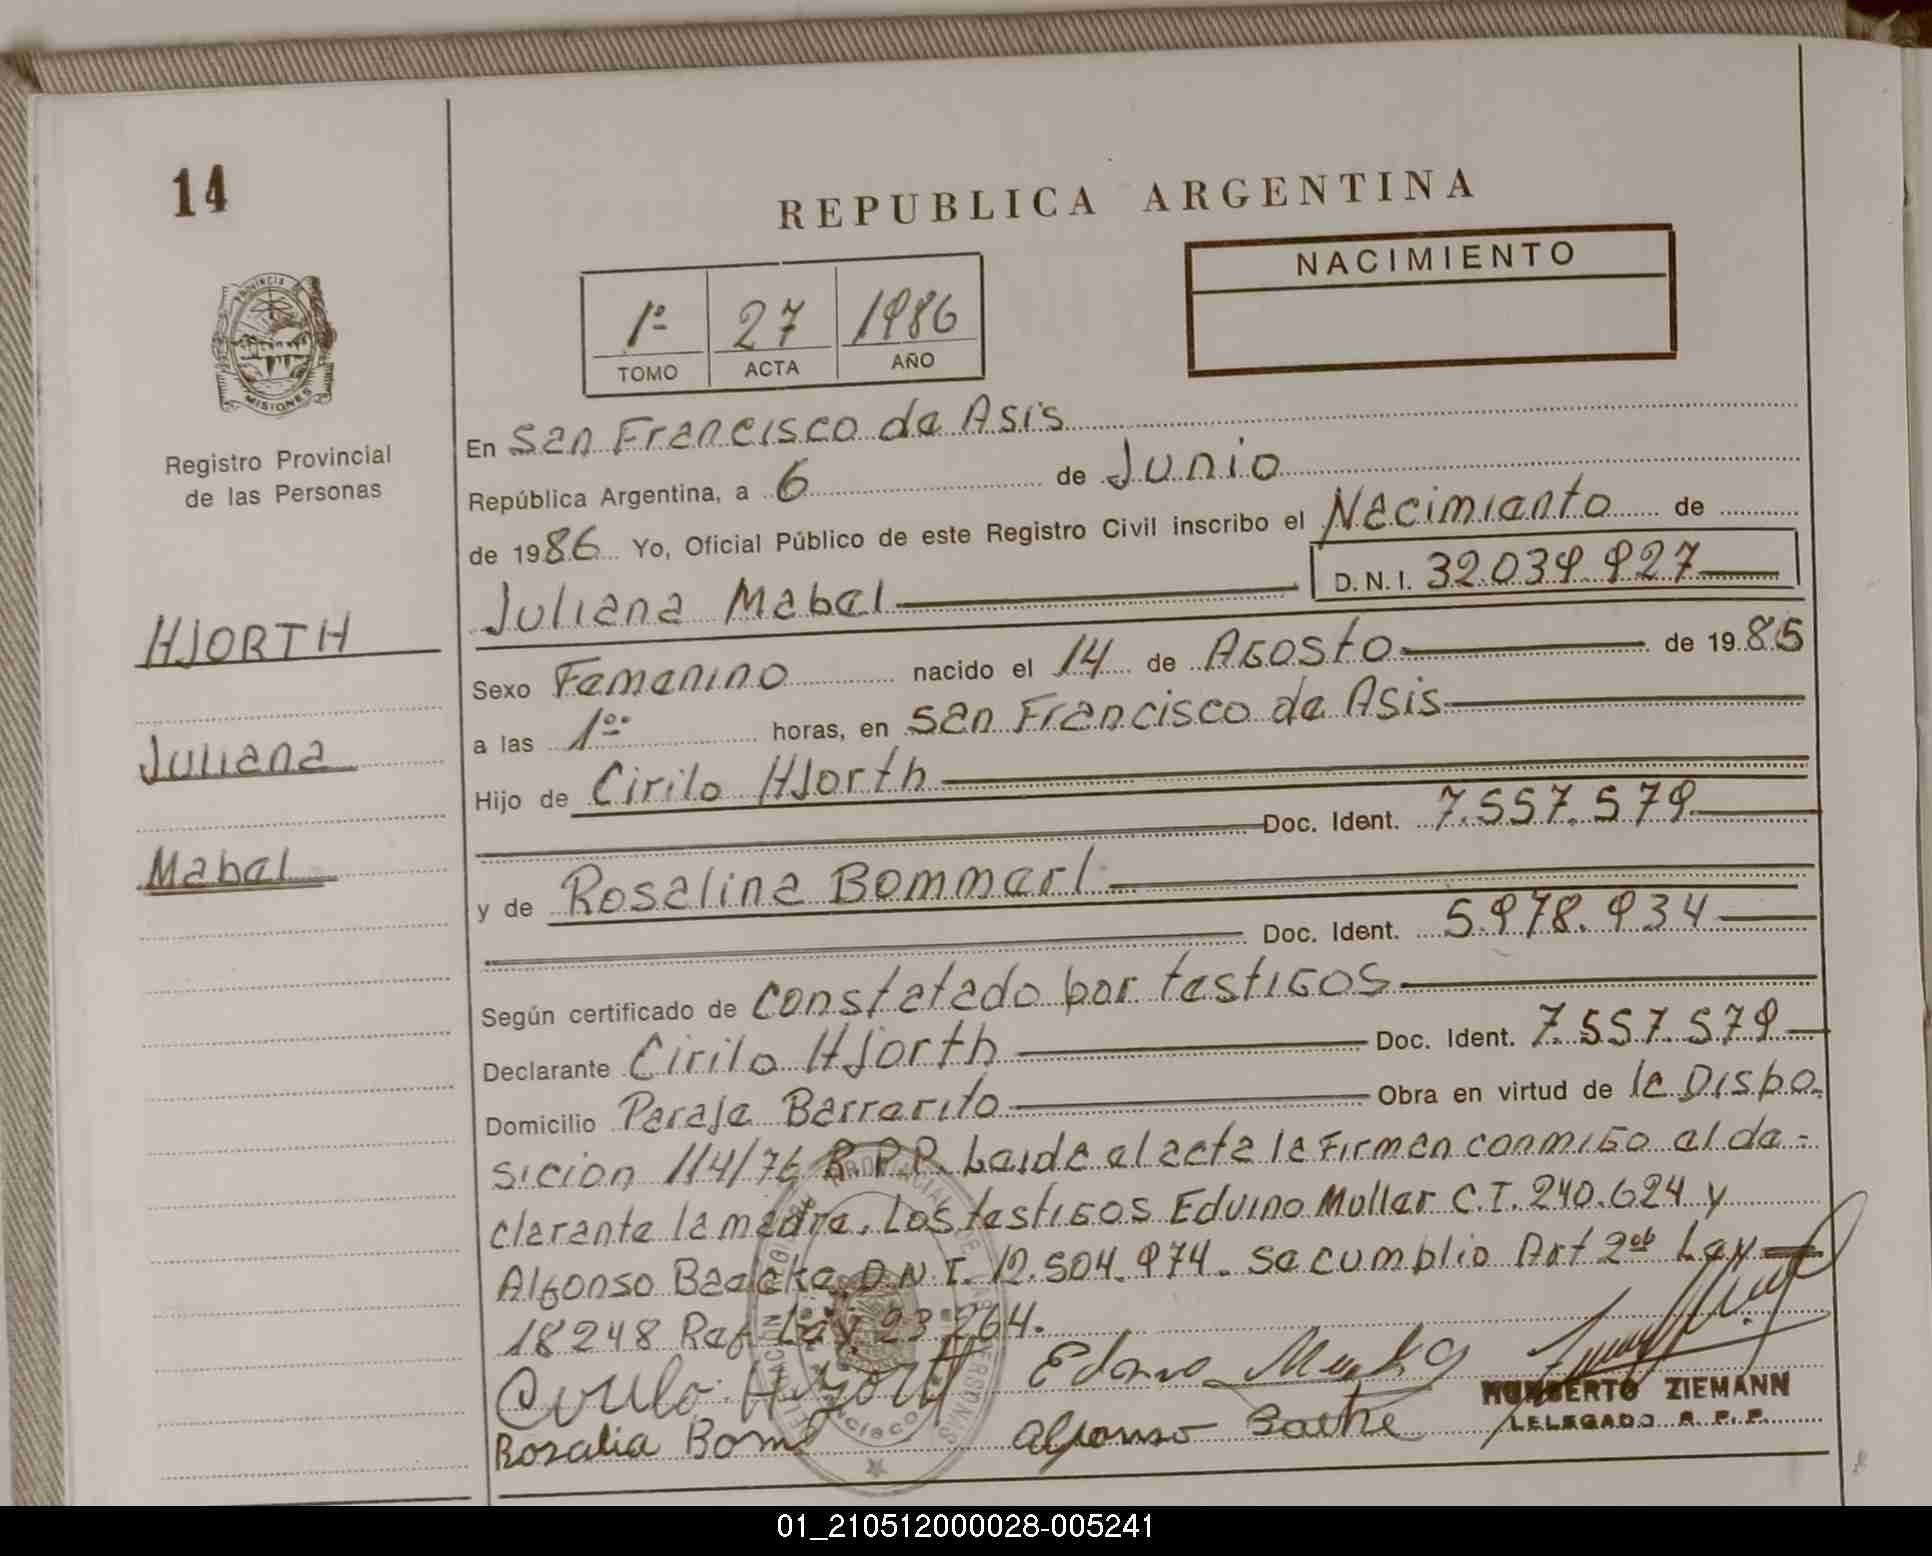 14
REPUBLICA ARGENTINA
NACIMIENTO
1º 27 1986
TOMO ACTA AÑO
PROVINCIA
MISIONES
Registro Provincial
de las Personas
HJORTH
Juliana
Mabel
En San Francisco de Asis
República Argentina, a 6 de Junio
de 1986 Yo, Oficial Público de este Registro Civil inscribo el Nacimiento de
Juliana Mabel D.N.I. 32.039.927
Sexo Femenino nacido el 14 de Agosto de 1985
a las 1ºº horas, en San Francisco de Asis
Hijo de Cirilo Hjorth
Doc. Ident. 7.557.579
y de Rosalina Bommerl
Doc. Ident. 5.978.934
Según certificado de Constatado por testigos
Declarante Cirilo Hjorth Doc. Ident. 7.557.579
Domicilio Paraje Barrerito Obra en virtud de la Dispo.
sicion 114/76 R.P.P. Leida el acta la Firman conmigo el de=
clarante la madre. Los testigos Eduino Muller C.I. 240.624 y
Alfonso Baacke D.N.I. 12.504.974. se cumplio Art 2º Ley
18248 Ref Ley 23.264.
Cirilo Hjorth
Rosalia Bom
Alfonso Backe
HUMBERTO ZIEMANN
DELEGADO R. P. P.
01_210512000028-005241